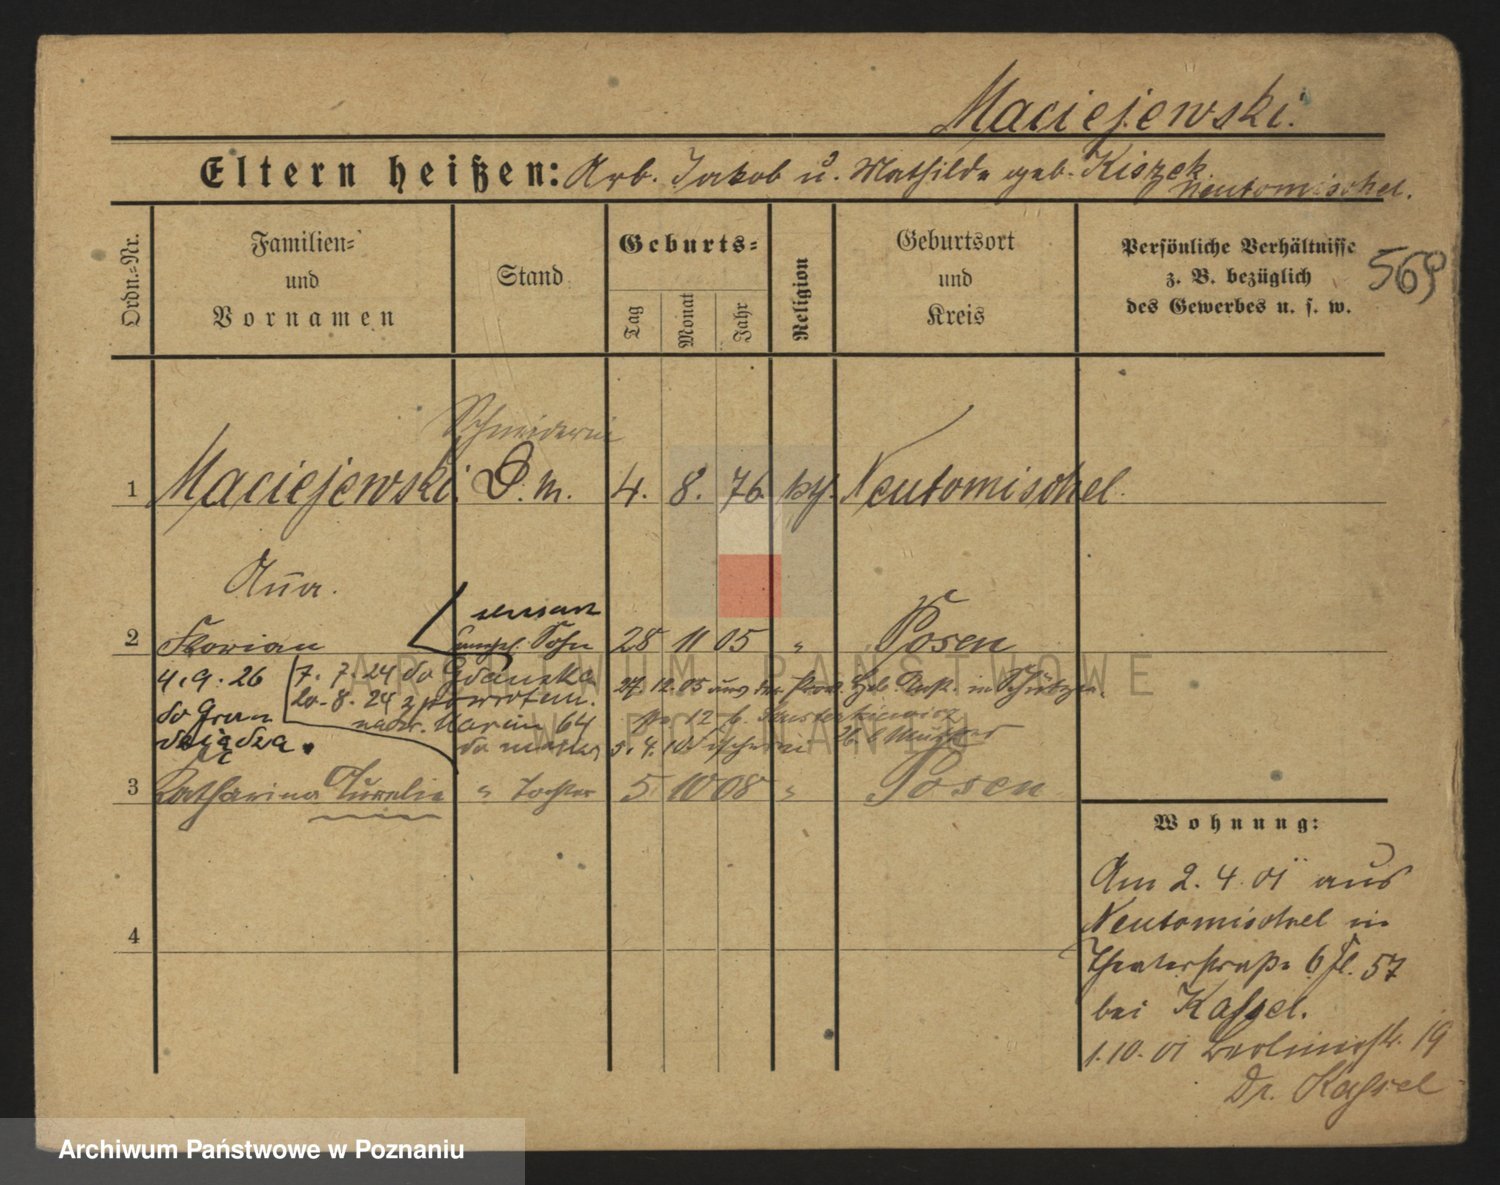 Maciejewski.
Eltern heißen: Arb. Jakob u. Mathilde geb. Kiszek
Neutomischel.
Ordn.-Nr.
Familien- und Vornamen
Stand
Geburts-
Tag
Monat
Jahr
Religion
Geburtsort und Kreis
Persönliche Verhältnisse
z. B. bezüglich
des Gewerbes u. s. w.
569
Schneiderin
1 Maciejewski. D. m. 4. 8. 76 Neutomischel.
Anna.
2 Florian Sohn 28 11 05 " Posen
4.9.26
7.7.24 do Gdańska
20.8.24 z powrotem.
64
do Gru
dziądza.
27.12.05
5.4.10
3 Katharina Aurelie " Tochter 5 10 08 " Posen
4
Wohnung:
Am 2.4.01 aus
Neutomischel in
Theaterstraße 6 Fl. 57
bei Kassel.
1.10.01 Berlinerstr. 19
Dr. Kassel
ARCHIWUM PAŃSTWOWE
W POZNANIU
Archiwum Państwowe w Poznaniu